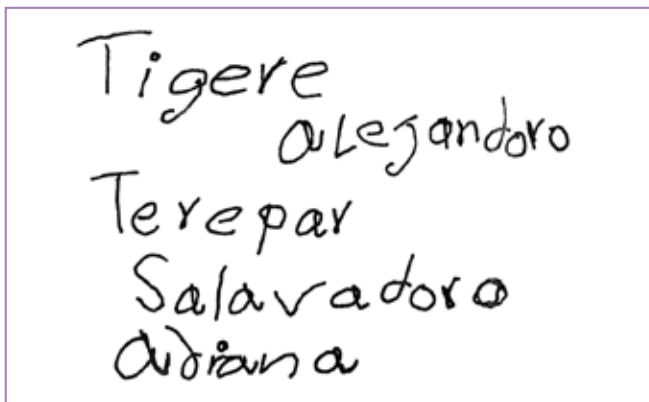 Tigere
aLejandoro
Terepar
Salavadoro
adriana